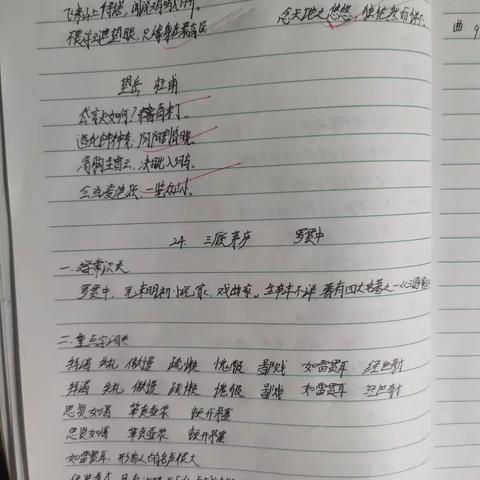 飞来山上千寻塔，闻说鸡鸣见日升。
不畏浮云遮望眼，只缘身在最高层
念天地之悠悠，独怆然而涕下。
曲
望岳 杜甫
岱宗夫如何？齐鲁青未了。
造化钟神秀，阴阳割昏晓。
荡胸生曾云，决眦入归鸟。
会当凌绝顶，一览众山小。
24. 三顾茅庐 罗贯中
一、文学常识
罗贯中，元末明初小说家，戏曲家。生卒年不详 著有四大名著之一《三国
二、重点字词
拜谒 失礼 傲慢 疏懒 愧赧 鄙贱 如雷贯耳 经世奇才
拜谒 失礼 傲慢 疏懒 愧赧 鄙贱 如雷贯耳 经世奇才
思贤如渴 箪食壶浆 顿开茅塞
思贤如渴 箪食壶浆 顿开茅塞
如雷贯耳：形容人的名声很大